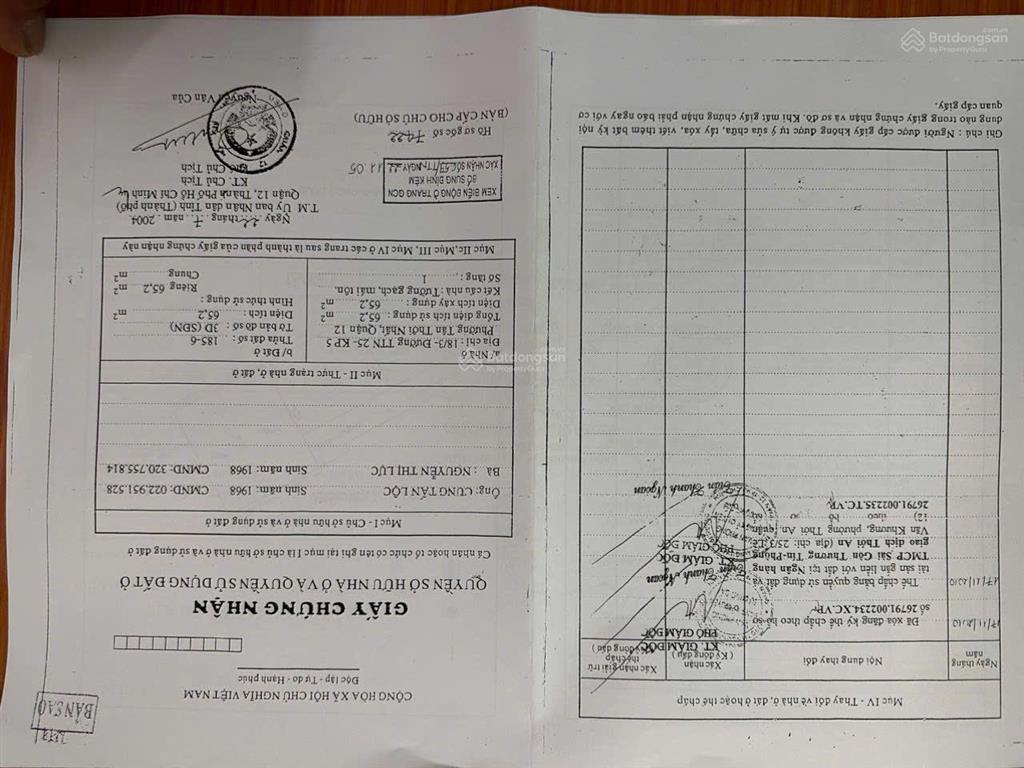 CỘNG HÒA XÃ HỘI CHỦ NGHĨA VIỆT NAM
Độc lập - Tự do - Hạnh phúc
BẢN SAO
GIẤY CHỨNG NHẬN
QUYỀN SỞ HỮU NHÀ Ở VÀ QUYỀN SỬ DỤNG ĐẤT Ở
Cá nhân hoặc tổ chức có tên ghi tại mục I là chủ sở hữu nhà ở và sử dụng đất ở
Mục I - Chủ sở hữu nhà ở và sử dụng đất ở
Ông: CUNG TẤN LỘC Sinh năm: 1968 CMND: 022.951.528
Bà : NGUYỄN THỊ LỰC Sinh năm: 1968 CMND: 320.755.814
Mục II - Thực trạng nhà ở, đất ở
a/ Nhà ở
Địa chỉ: 18/3- Đường TTN 25- KP 5
Phường Tân Thới Nhất, Quận 12
Tổng diện tích sử dụng: 65,2 m²
Diện tích xây dựng: 65,2 m²
Kết cấu nhà: Tường gạch, mái tôn.
Số tầng: 1
b/ Đất ở
Thửa đất số: 185-6
Tờ bản đồ số: 3D (SĐN)
Diện tích: 65,2 m²
Hình thức sử dụng:
Riêng 65,2 m²
Chung m²
Mục IIc, Mục III, Mục IV ở các trang sau là thành phần của giấy chứng nhận này
Ngày tháng 7 năm 2004
T.M Ủy ban Nhân dân Tỉnh (Thành phố)
Quận 12, Thành Phố Hồ Chí Minh
KT. Chủ Tịch
Phó Chủ Tịch
Nguyễn Văn Của
XEM BIẾN ĐỘNG Ở TRANG GCN
BỔ SUNG ĐÍNH KÈM
Hồ sơ gốc số 7922
(BẢN CẤP CHO CHỦ SỞ HỮU)
Mục IV - Thay đổi về nhà ở, đất ở hoặc thế chấp
Ngày tháng năm
Nội dung thay đổi
Xác nhận (Ký đóng dấu)
Xác nhận giải trừ thế chấp (Ký đóng dấu)
17/11/2010
Đã xóa đăng ký thế chấp theo hồ sơ
số 26791.002234.XC.VP
KT. GIÁM ĐỐC
PHÓ GIÁM ĐỐC
Trần Thanh Ngoan
17/11/2010
Thế chấp bằng quyền sử dụng đất và
tài sản gắn liền với đất tại Ngân hàng
TMCP Sài Gòn Thương Tín-Phòng
giao dịch Thới An (địa chỉ: 25/3 Lê
Văn Khương, phường Thới An, quận
12) theo hồ sơ
26791.002235.TC.VP
KT. GIÁM ĐỐC
PHÓ GIÁM ĐỐC
Trần Thanh Ngoan
Ghi chú : Người được cấp giấy không được tự ý sửa chữa, tẩy xóa, viết thêm bất kỳ nội
dung nào trong giấy chứng nhận và sơ đồ. Khi mất giấy chứng nhận phải báo ngay với cơ
quan cấp giấy.
Batdongsan.com.vn
by PropertyGuru
Batdongsan
by PropertyGuru